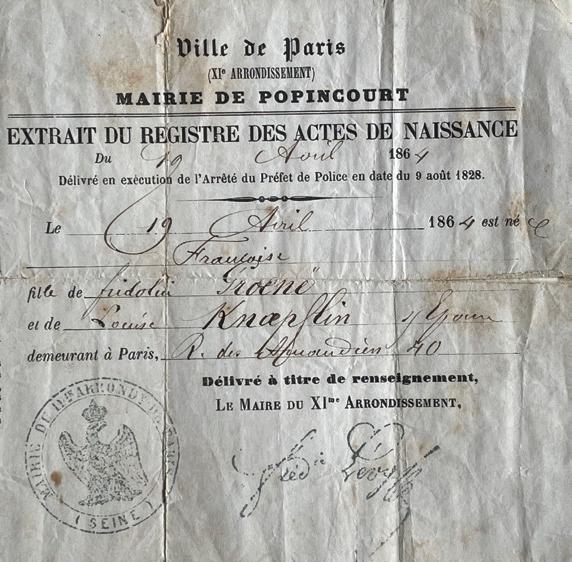 Ville de Paris
(XIe ARRONDISSEMENT)
MAIRIE DE POPINCOURT
EXTRAIT DU REGISTRE DES ACTES DE NAISSANCE
Du 19 Avril 1864
Délivré en exécution de l'Arrêté du Préfet de Police en date du 9 août 1828.
Le 19 Avril 1864 est née
Françoise
fille de fridolin
et de Louise Knœpflin
demeurant à Paris, R. des 40
Délivré à titre de renseignement,
LE MAIRE DU XIme ARRONDISSEMENT,
MAIRIE DU
(SEINE)